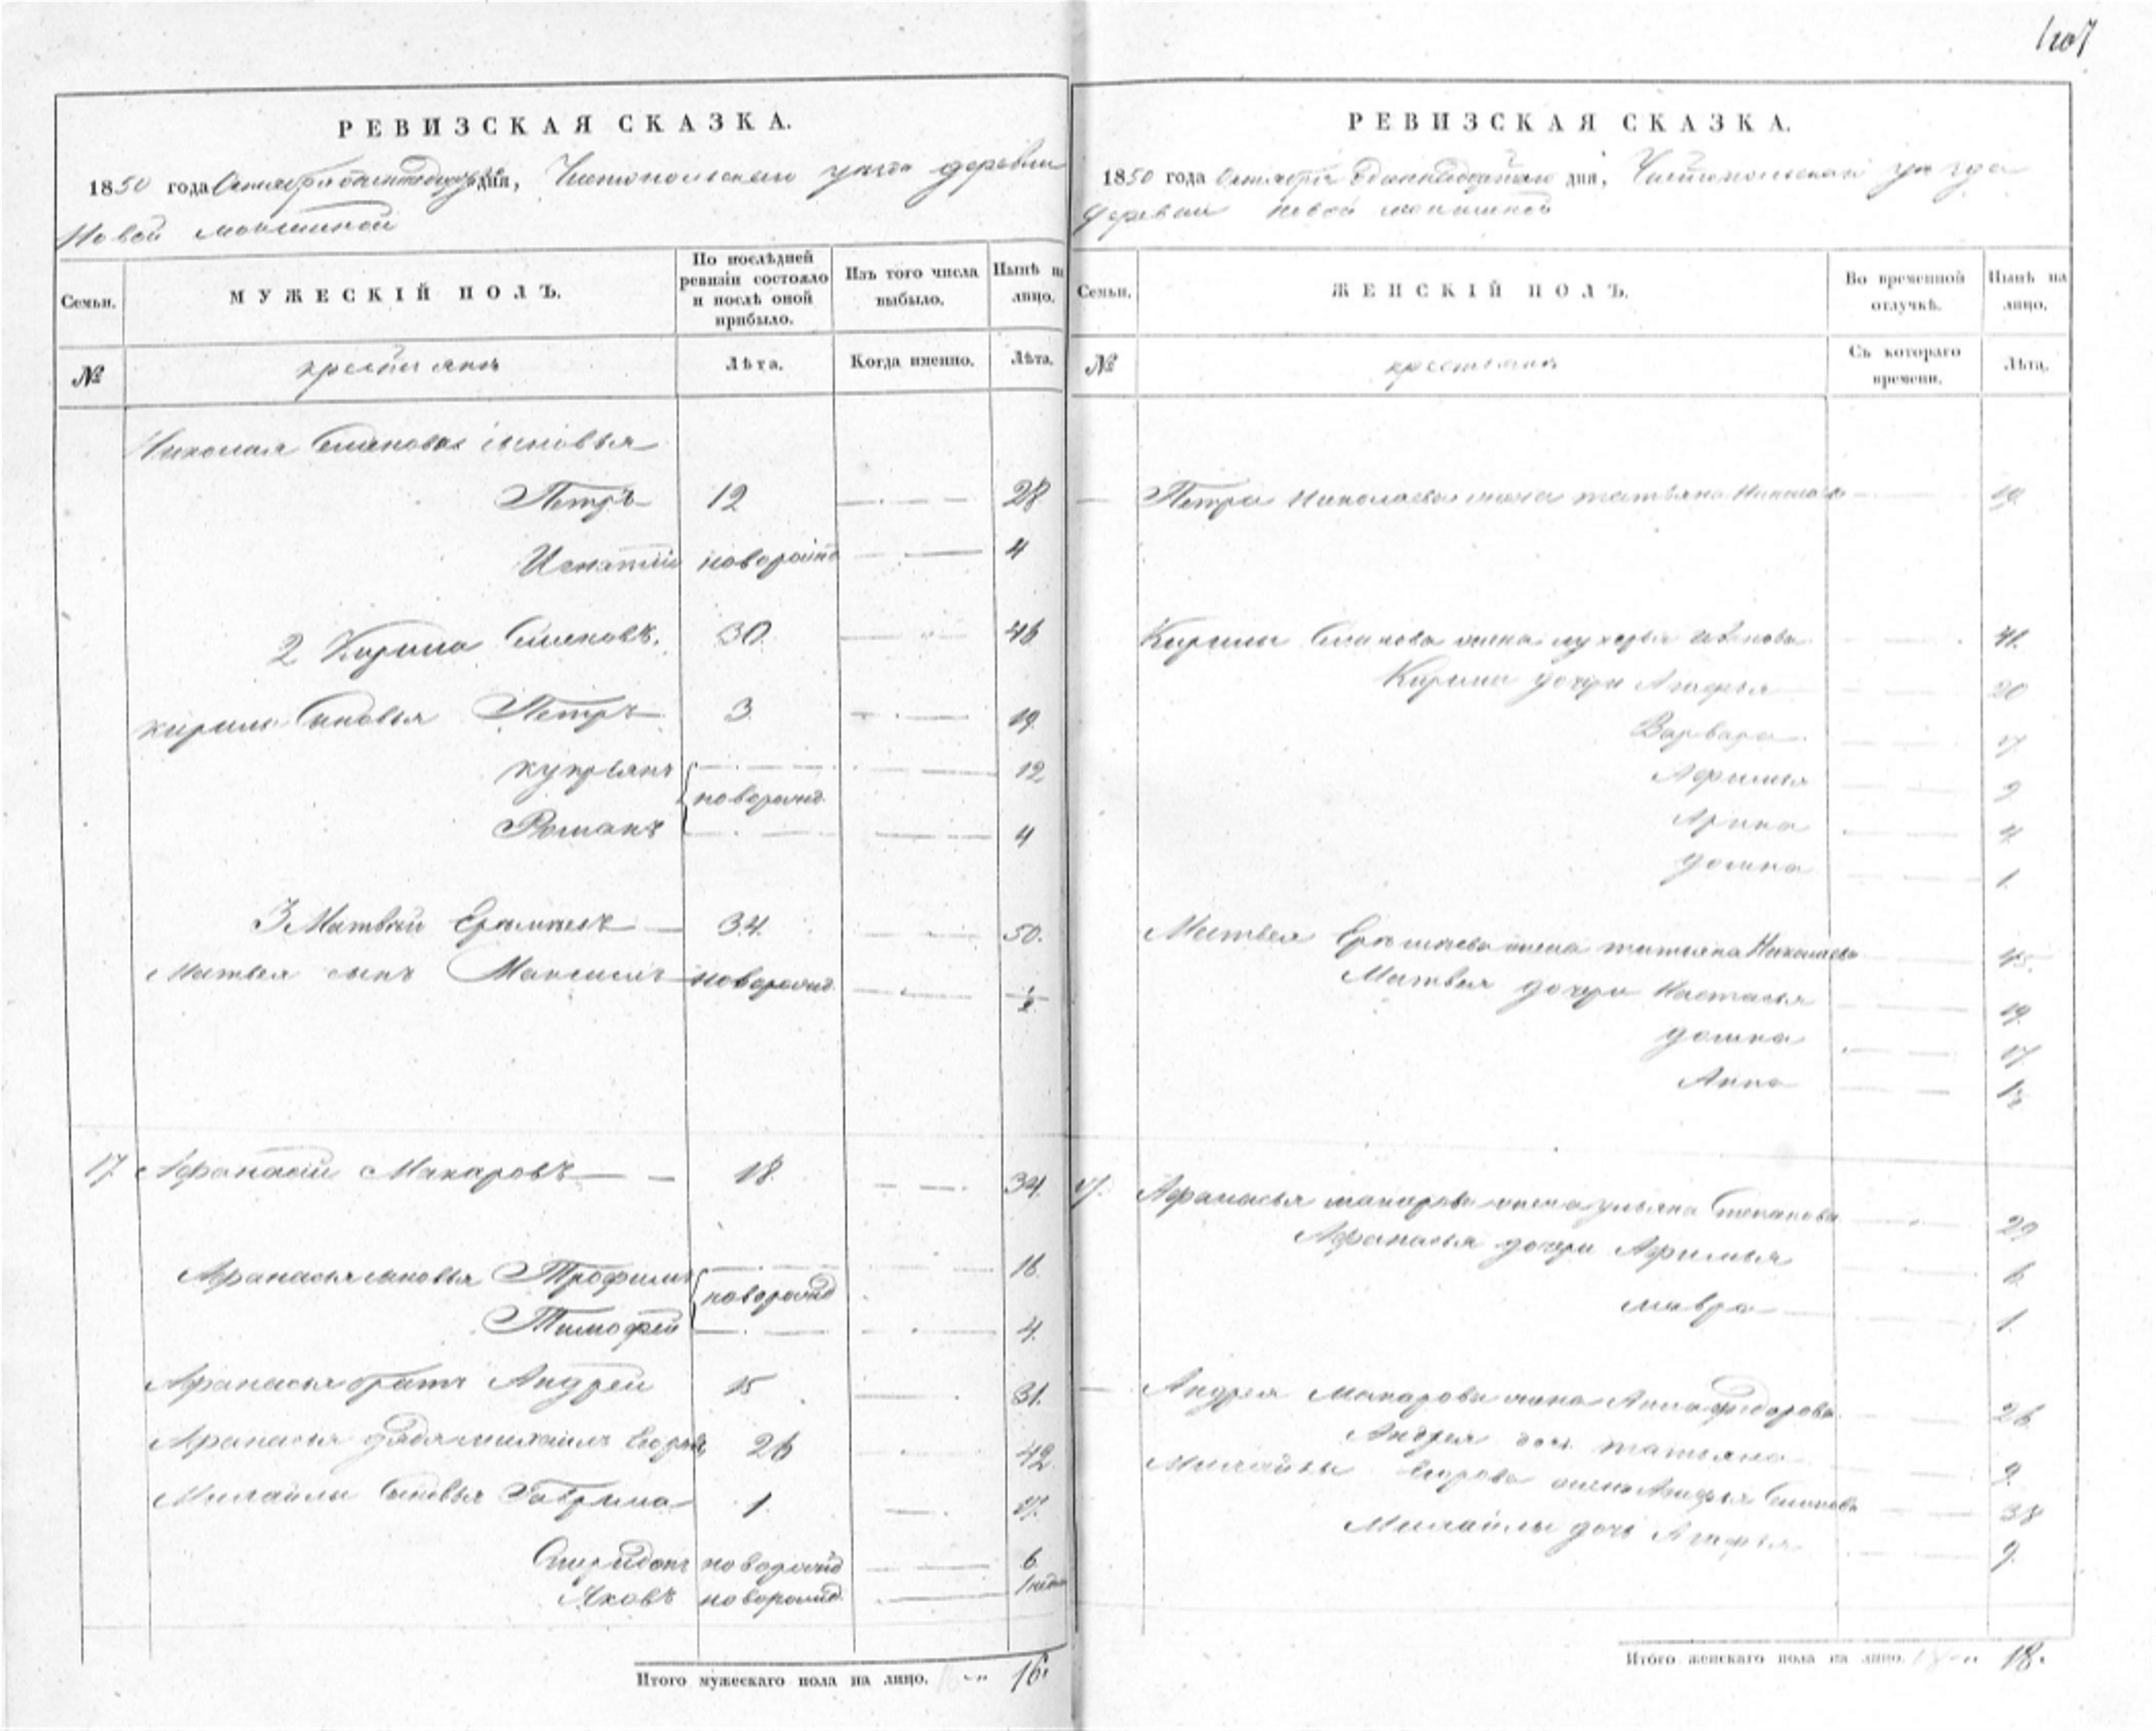 107
РЕВИЗСКАЯ СКАЗКА.
1850 года Октября дня, Чистопольскаго уезда деревни
Новой мокшиной
Семьи.
МУЖЕСКІЙ ПОЛЪ.
По послѣдней ревизіи состояло и послѣ оной прибыло.
Изъ того числа выбыло.
Нынѣ на лицо.
№
крестьянъ
Лѣта.
Когда именно.
Лѣта.
Николая Семенова сыновья
Петръ 12 28
Игнатій новорожд 4
2 Кирила Семеновъ. 30. 46
кирилы сыновья Петръ 3 19.
купрьянъ 12
новорожд.
Романъ 4
3 Матвѣй 34. 50.
Матвея сынъ Максимъ новорожд. 1/2
17. Афанасій Макаровъ 18. 34.
Афанасья сыновья Трофимъ 16.
новорожд
Тимофей 4.
Афанасья братъ Андрей 15 31.
Афанасья дядя михаилъ 26 42.
Михайлы сыновья Гаврила 1. 17.
Спиридонъ новорожд 6
Яковъ новорожд.
Итого мужескаго пола на лицо. 16.
РЕВИЗСКАЯ СКАЗКА.
1850 года Октября дня, Чистопольскаго уезда
деревни новой мокшиной
Семьи.
ЖЕНСКІЙ ПОЛЪ.
Во временной отлучкѣ.
Нынѣ на лицо.
№
крестьянъ
Съ котораго времени.
Лѣта.
Петра Николаева жена татьяна 19.
Кирилы Семенова жена лукерья 41.
Кирилы дочери Агафья 20
Варвара 17
Афимья 9
Арина 4.
домна 1.
Матвея жена татьяна Николаева 45.
Матвея дочери Настасья 19.
домна 17
Анна
17. Афанасья макарова жена ульяна Степанова 29
Афанасья дочери Афимья 6.
мавра 1.
Андрея Макарова жена Анна федорова 26
Андрея дочь татьяна 9.
Михайлы Егорова жена Агафья Семенова 38
Михайлы дочь Агафья 9.
Итого женскаго пола на лицо. 18.